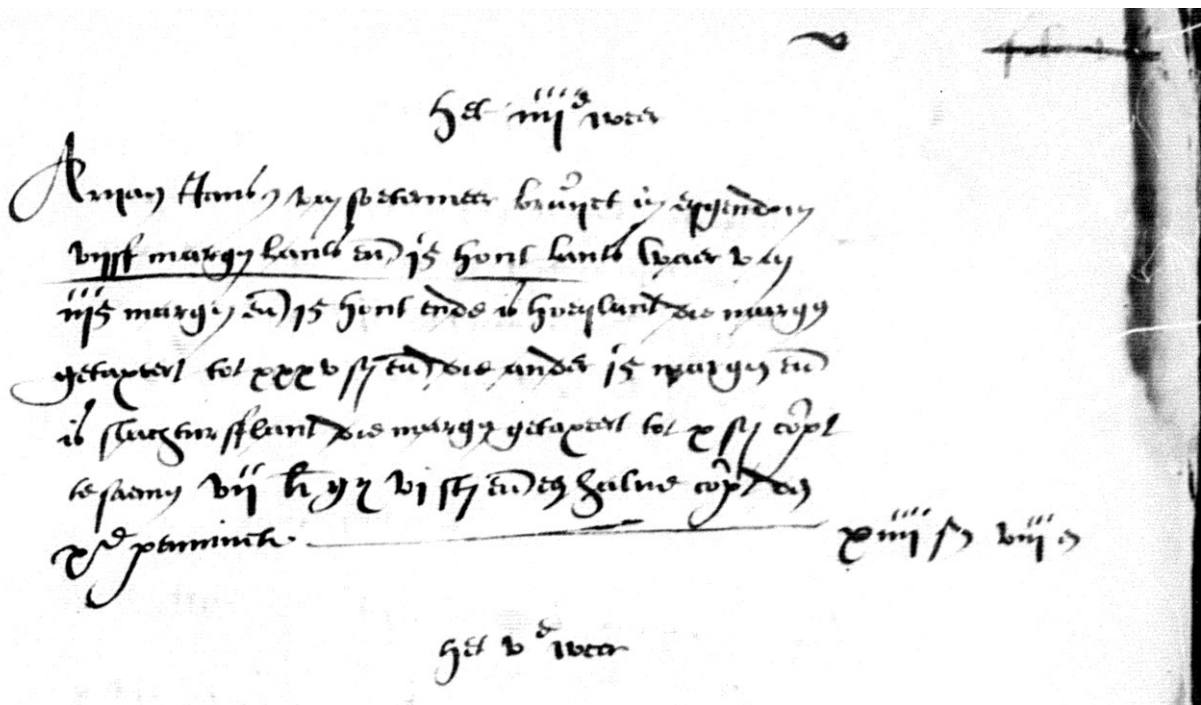 het iiij^e weer
Arijan Hans z van soetermeer bruijct in eygendom
vijff margen lants en̄ i½ hont lants waer van
iij½ margen en̄ i½ hont ende is hoeylant die margen
getaxeert tot xxxv st en̄ die ander i½ margen en̄
is slachturfflant die margen getaxeert tot x st co̅pt
te saemen vij £ vi st en̄ halve co̅pt den
x^e penninck xiiij st viij d
het v^e weer